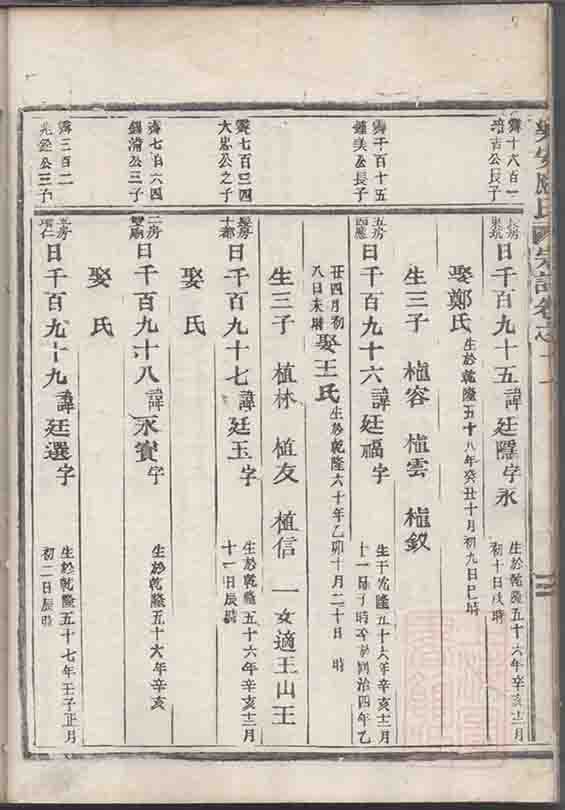 樂安應氏宗譜卷之十二
霽十六百一
培吉公長子
長房
日千百九十五諱廷隱字永
生於乾隆五十六年辛亥十二月
初十日戌時
娶鄭氏
生於乾隆五十八年癸丑十月初九日巳時
生三子 植容 植雲 植釵
霽千百十五
鍾美公長子
五房
日千百九十六諱廷福字
生于乾隆五十六年辛亥十二月
十一日子時卒於同治四年乙
丑四月初
八日未時
娶王氏
生於乾隆六十年乙卯十月二十日 時
生三子 植林 植友 植信 一女適王山王
霽七百四
大忠公之子
十都
日千百九十七諱廷玉字
生於乾隆五十六年辛亥十二月
十一日辰時
娶 氏
霽七百六四
錫浦公三子
二房
雙廟
日千百九十八諱永賓字
生於乾隆五十六年辛亥
娶 氏
霽三百二
兆公三子
五房
日千百九十九諱廷選字
生於乾隆五十七年壬子正月
初二日辰時